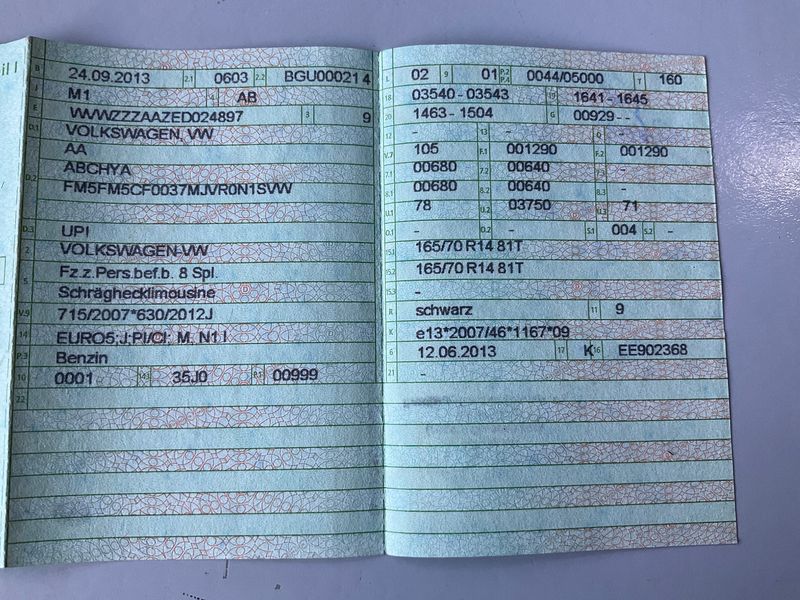 B 24.09.2013 2.1 0603 2.2 BGU000214
J M1 4 AB
E WVWZZZAAZED024897 3 9
D.1 VOLKSWAGEN, VW
AA
D.2 ABCHYA
FM5FM5CF0037MJVR0N1SVW
D.3 UP!
2 VOLKSWAGEN-VW
5 Fz.z.Pers.bef.b. 8 Spl.
Schräghecklimousine
V.9 715/2007*630/2012J
14 EURO5;J;PI/CI; M, N1 I
P.3 Benzin
10 0001 14.1 35J0 P.1 00999
22
L 02 9 01 P.2 P.4 0044/05000 T 160
18 03540 - 03543 19 1641 - 1645
20 1463 - 1504 G 00929 - -
12 - 13 - Q -
V.7 105 F.1 001290 F.2 001290
7.1 00680 7.2 00640 7.3 -
8.1 00680 8.2 00640 8.3 -
U.1 78 U.2 03750 U.3 71
O.1 - O.2 - S.1 004 S.2 -
15.1 165/70 R14 81T
15.2 165/70 R14 81T
15.3 -
R schwarz 11 9
K e13*2007/46*1167*09
6 12.06.2013 17 K 16 EE902368
21 -